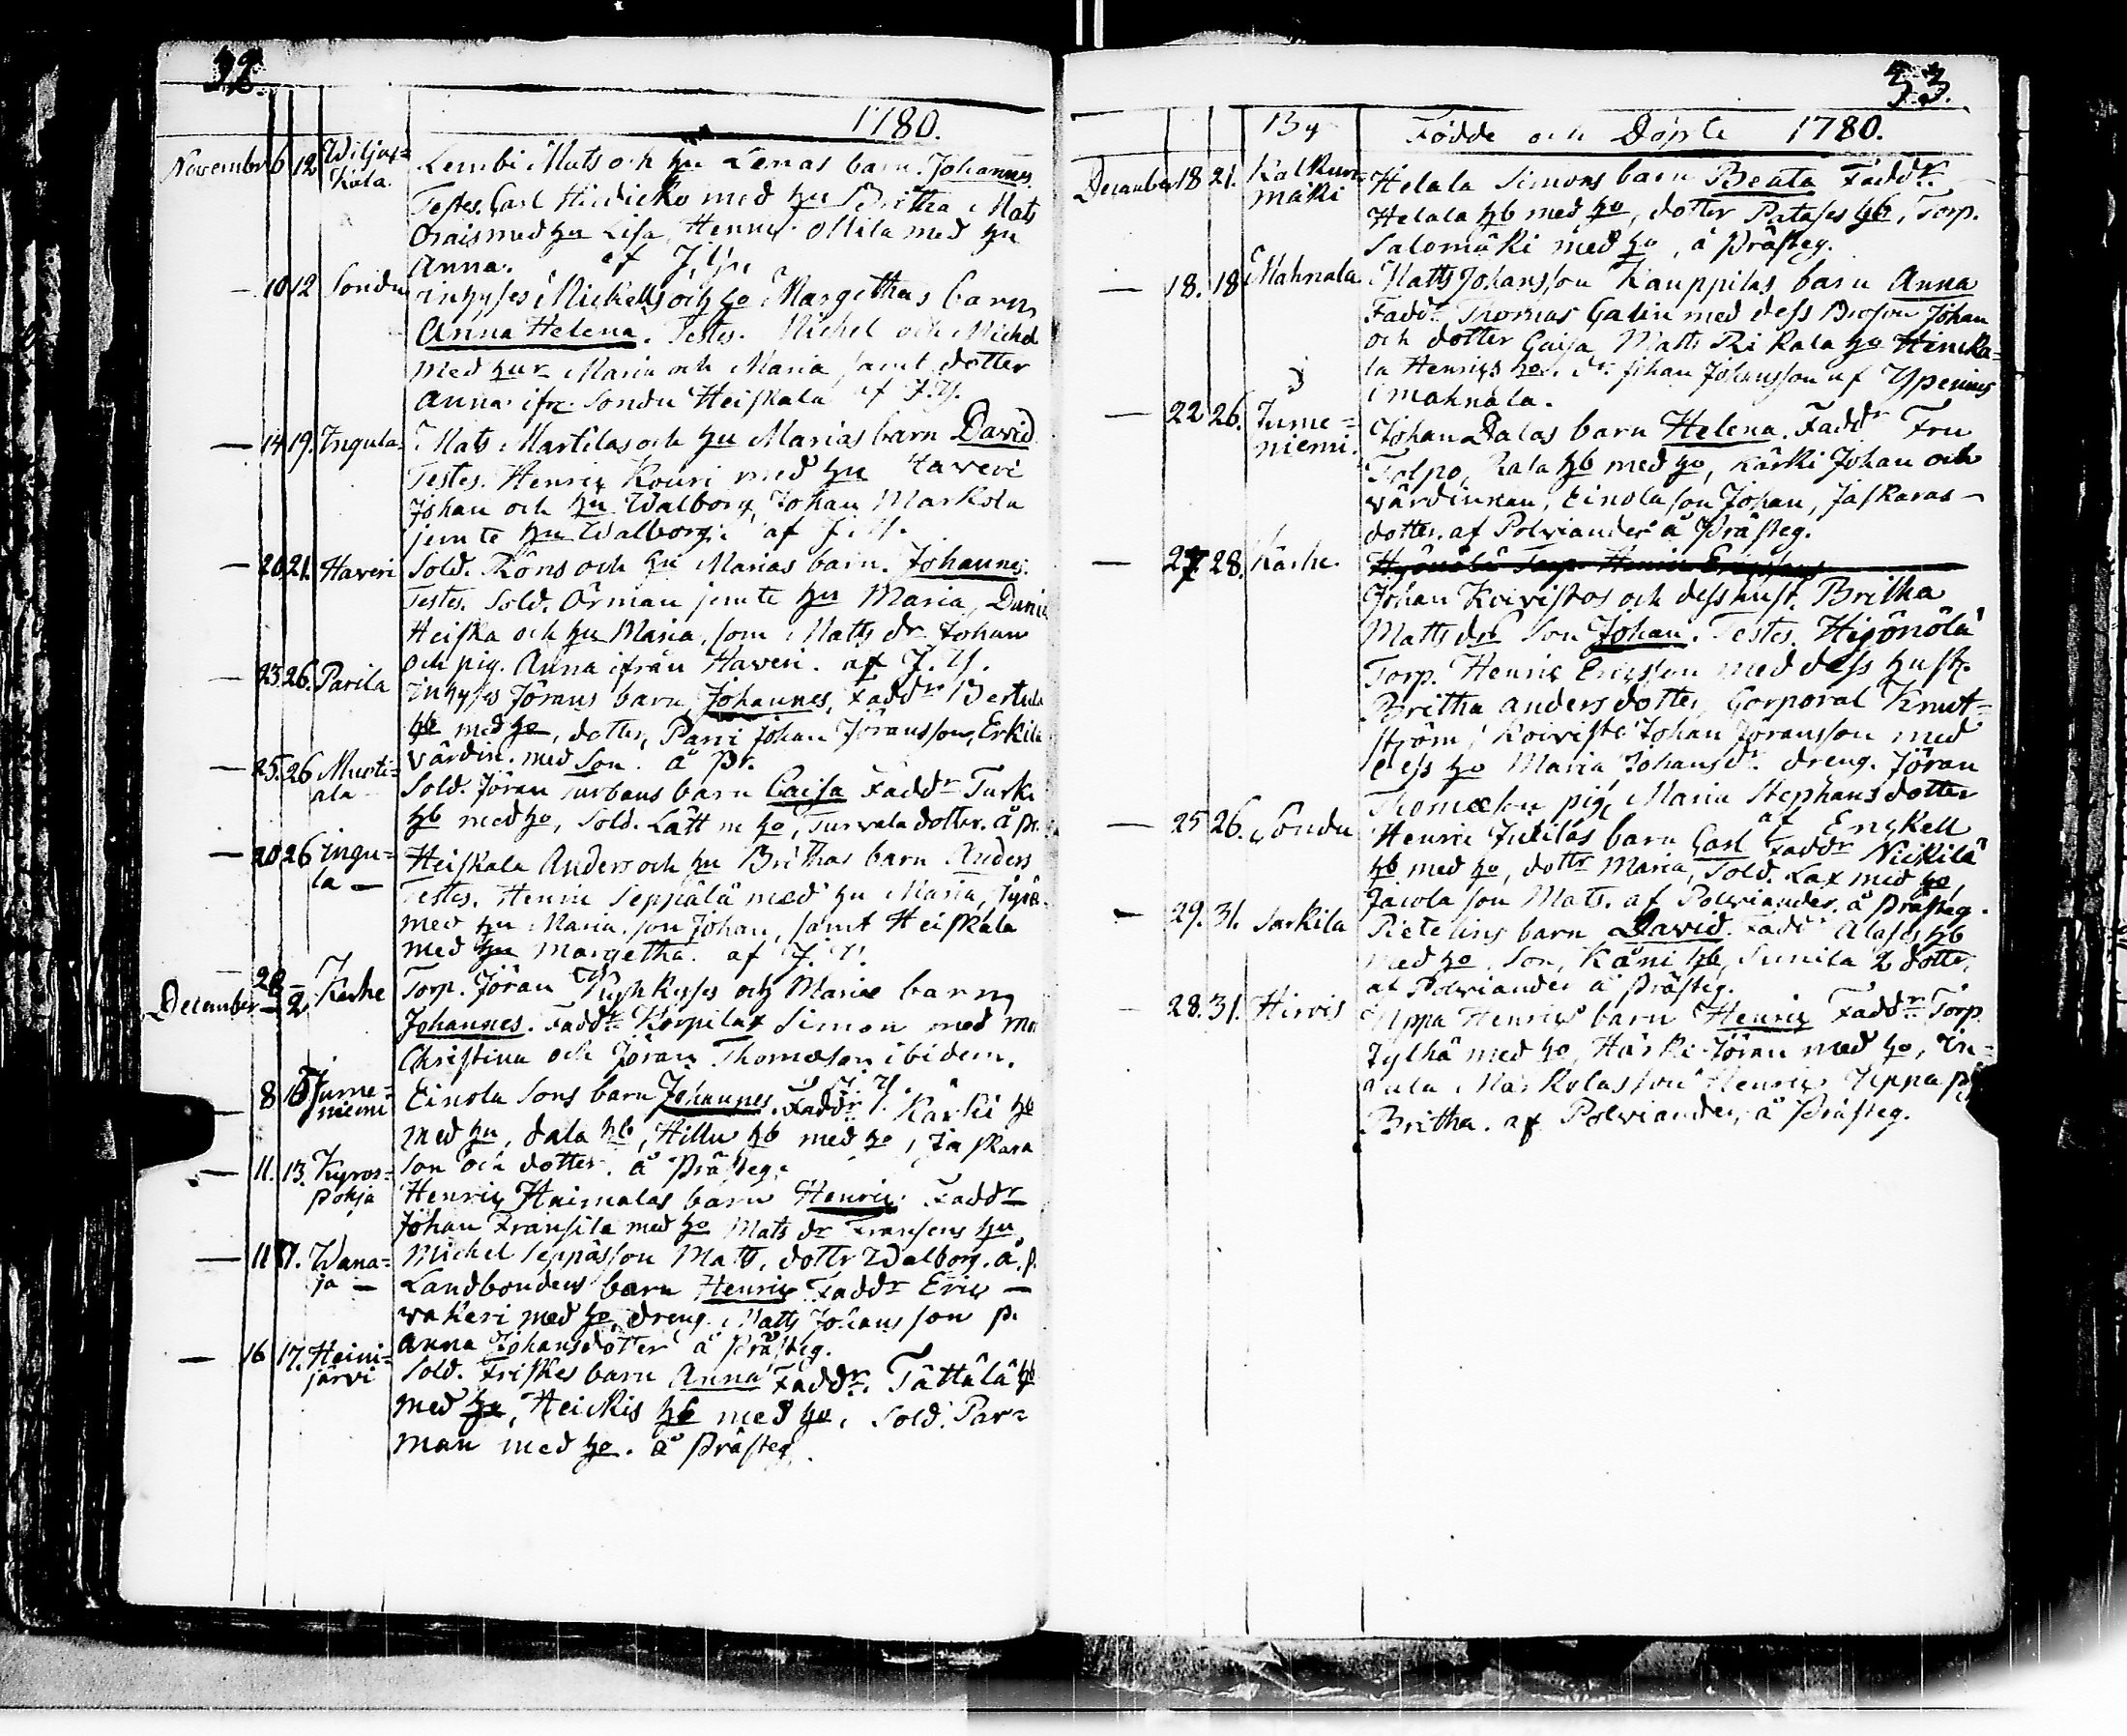 32.
1780.
November 6 12 Wiljax=
kala.
Lembi Mats och hu Lenas barn. Johannes
Testes. Carl Hirdicko med hu Britha Mats
Orais med hu Lisa, Henric Ollila med hu
Anna. af J. Y.
— 10 12 Sondu
inhyses Mickells och ho Margethas barn
Anna Helena. Testes. Michel och Michel
med hur Maria och Maria samt dotter
Anna ifr. Sondu Heiskala af J. Y.
— 14 19. Ingula
Mats Martilas och hu Marias barn David
Testes. Henrix Kouri med hu Haveri
Johan och hu Walborg, Johan Markola
jemte hu Walborg. af J. Y.
— 20 21. Haveri
Sold. Röns och hu Marias barn. Johannes.
Testes. Sold. Örman jemte hu Maria,
Heiska och hu Maria, som Matts dr Johan
och pig. Anna ifrån Haveri. af J. Y.
— 23 26. Parila
inhyses Jörans barn Johannes, Faddr Bertula
hb med ho, dotter, Parri Johan Jöransson, Erkila
värdin. med Son. å Pr.
— 25. 26 Murti=
ala
Sold. Jöran urbans barn Caisa Faddr Turki
hb med ho, Sold. Lätt m ho, Turvala dotter. å Pr.
— 20 26 ingu=
la —
Heiskala Anders och hu Brithas barn Anders
Testes. Henric Seppälä med hu Maria,
med hu Maria. son Johan, samt Heiskala
med hu Margetha. af J. Y.
— 28 —
December — 2 Kerhe
Torp. Jöran Pyhkyses och Mariæ barn
Johannes. Faddr Korpilax Simon med
Christina och Jöran Thomæson ibidem.
J. Y.
— 8 10 Jume=
niemi
Einola Sons barn Johannes. Faddr Kärki hb
med hu, dala hb, Hillu hb med ho, Jaskara
son och dotter. å Prästeg.
— 11. 13. Kyros=
pohja
Henrix Haimalas barn Henric. Faddr
Johan Fransila med ho Mats dr Fransens hu
Michel Seppässon Matts, dottr Walborg. å. p.
— 11 17. Wana=
ja —
Landbondens barn Henrix Faddr Eric —
vakeri med ho, dreng. Matts Johansson p.
Anna Johansdotter å Prästeg.
— 16 17. Heini=
järvi
Sold. Friskes barn Anna Faddr. Tättälä hb
med ho, Heickis hb med ho. Sold. Par=
man med ho. å Prästeg.
33.
By Födde och Döpte 1780.
December 18 21. Kalkun=
mäki
Helala Simons barn Beata Faddr.
Helala hb med ho, dotter Patases hb, Torp.
Salomäki med ho, å Prästeg.
— 18. 18 Mahnala
Matts Johansson Kauppilas barn Anna
Faddr Thomas Galin med dess Broson Johan
och dotter Caisa Matts Rikala ho Hincka=
la Henrix ho. Johan Johansson af Ypenius
i mahnala.
— 22 26. Jume=
niemi.
Johan Dalas barn Helena. Faddr Fru
Tolpo, Rala hb med ho, Kärki Johan och
värdinnan, Einola son Johan, Jaskaras —
dotter. af Polviander å Prästeg.
— 27. 28. Kärhe.
Hyönölä Torp. Henric Ericsson
Johan Koivistos och dess hust. Britha
Matts dr Son Johan. Testes. Hyönölä
Torp. Henric Ericsson med dess hust.
Britha Andersdotter, Corporal Knut=
ström, Koivisto Johan Jöransson med
dess ho Maria Johansdr. dreng. Jöran
Thomæson pig. Maria Stephansdotter
af Enckell
— 25 26. Sondu
Henric Jutilas barn Carl Faddr Nickilä
hb med ho, dottr Maria, Sold. Lax med ho,
Jacola son Mats. af Polviander. å Prästeg.
— 29. 31. Sarkila
Pietelins barn David. Faddr Alases hb
med ho, Son, Käni hb, Sunila 2 dottr,
af Polviander å Prästeg.
28. 31. Hirvis
Uppa Henrix barn Henrix Faddr Torp.
Jylhä med ho, Härki Jöran med ho, in=
gula Markolas son Henrix Uppa
Britha. af Polviander, å Prästeg.